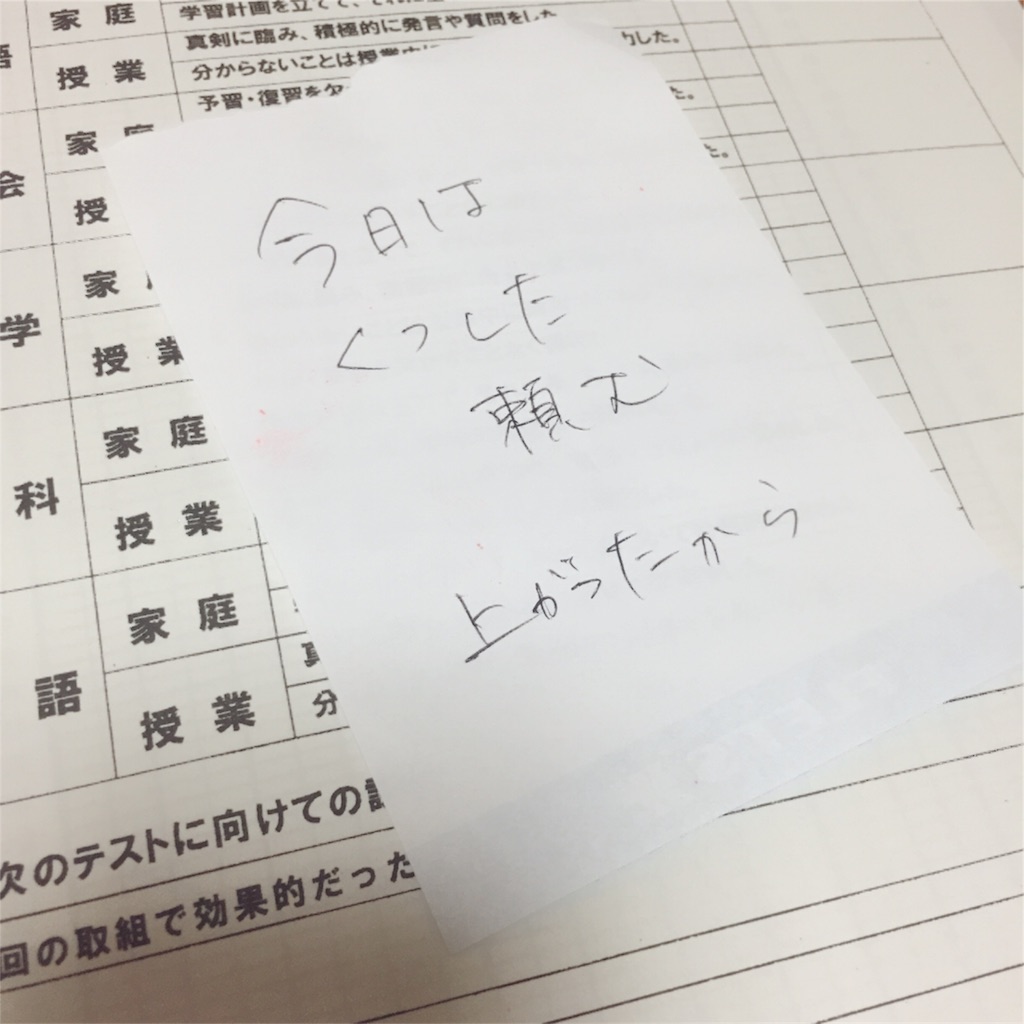 家庭
学習計画を立てて、
授業
真剣に臨み、積極的に発言や質問をした
分からないことは授業中に
力した。
家庭
予習・復習を欠
た。
会
授
た。
家
学
授業
家庭
科
授業
家庭
語
授業
分
次のテストに向けての
回の取組で効果的だった
今日は
くつした
頼む
上がったから